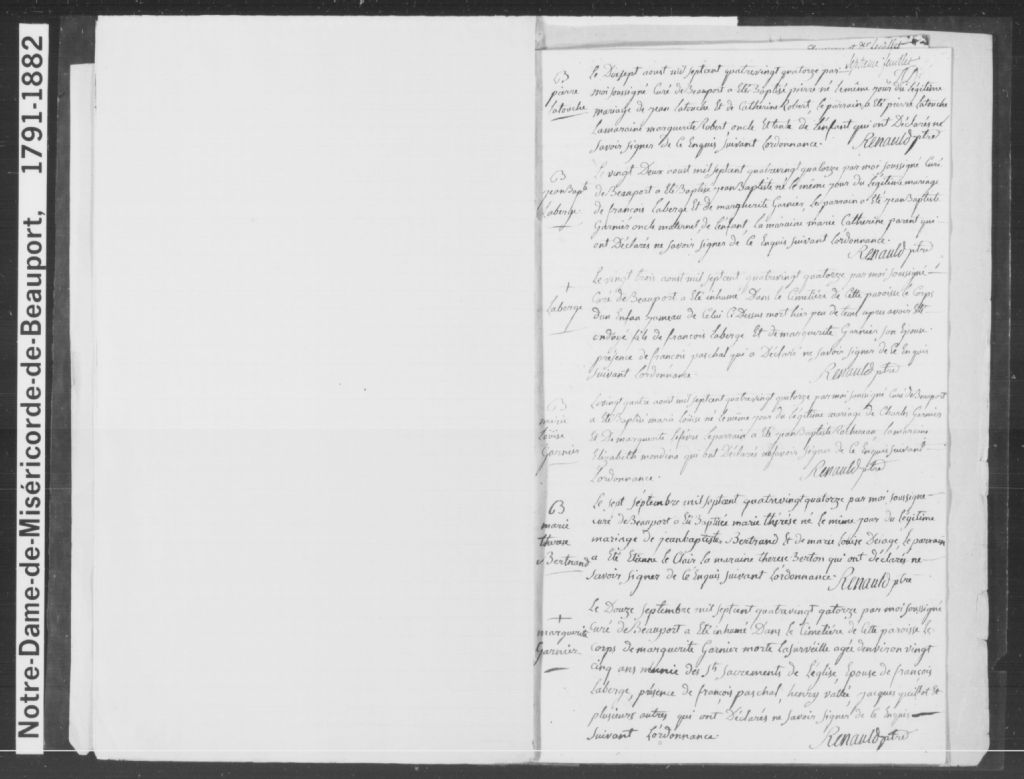 Notre-Dame-de-Miséricorde-de-Beauport, 1791-1882
septieme feuillet
B
pierre
Latouche
Le Dixsept aoust mil septcent quatrevingt quatorze par
moi soussigné Curé de Beauport a Eté Baptisé pierre né le même jour du légitime
mariage de jean latouche Et de Catherine Robert, le parrain a Eté pierre latouche
la maraine marguerite Robert oncle Et tante de l'enfant qui ont Déclarés ne
savoir signer de ce Enquis suivant l'ordonnance. Renauld ptre
B
jean Bapte
Laberge
Le vingt Deux aoust mil septcent quatrevingt quatorze par moi soussigné Curé
de Beauport a Eté Baptisé jean Baptiste né le même jour du légitime mariage
de françois laberge Et de marguerite Garnier, le parrain a Eté jean Baptiste
Garnier oncle maternel de l'enfant, la maraine marie Catherine parent qui
ont Déclarés ne savoir signer de ce Enquis suivant l'ordonnance.
Renauld ptre
+
laberge
Le vingt trois aoust mil septcent quatrevingt quatorze par moi soussigné
Curé de Beauport a Eté inhumé Dans le Cimetière de Cette paroisse le Corps
D'un Enfan jumeau de Celui Ci Dessus mort hier peu de tems apres avoir Eté
ondoyé fils de françois laberge Et de marguerite Garnier son Epouse
présence de françois paschal qui a Déclaré ne savoir signer de ce Enquis
suivant l'ordonnance. Renauld ptre
B
marie
louise
Garnier
Le vingt quatre aoust mil septcent quatrevingt quatorze par moi soussigné Curé de Beauport
a Eté Baptisée marie louise né le même jour du légitime mariage de Charles Garnier
Et De marguerite lefevre le parrain a Eté jean Baptiste la maraine
Elizabeth qui ont Déclarés ne savoir signer de ce Enquis suivant
l'ordonnance. Renauld ptre
B
marie
therese
Bertrand
Le sept septembre mil septcent quatrevingt quatorze par moi soussigné
curé de Beauport a Eté Baptisée marie thérèse né le même jour du légitime
mariage de jean baptiste Bertrand Et de marie louise le parrain
a Eté Etienne le Clair la maraine therese Berton qui ont déclarés ne
savoir signer de ce Enquis suivant l'ordonnance. Renauld ptre
+
marguerite
Garnier
Le Douze septembre mil septcent quatrevingt qatorze par moi soussigné
Curé de Beauport a Eté inhumé Dans le Cimetière de Cette paroisse le
corps de marguerite Garnier morte la surveille agée d'environ vingt
cinq ans munie des Sts Sacrements de l'église, Epouse de françois
laberge, présence de françois paschal, henry vallée jacques Et
plusieurs autres qui ont Déclarés ne savoir signer de ce Enquis
suivant l'ordonnance Renauld ptre